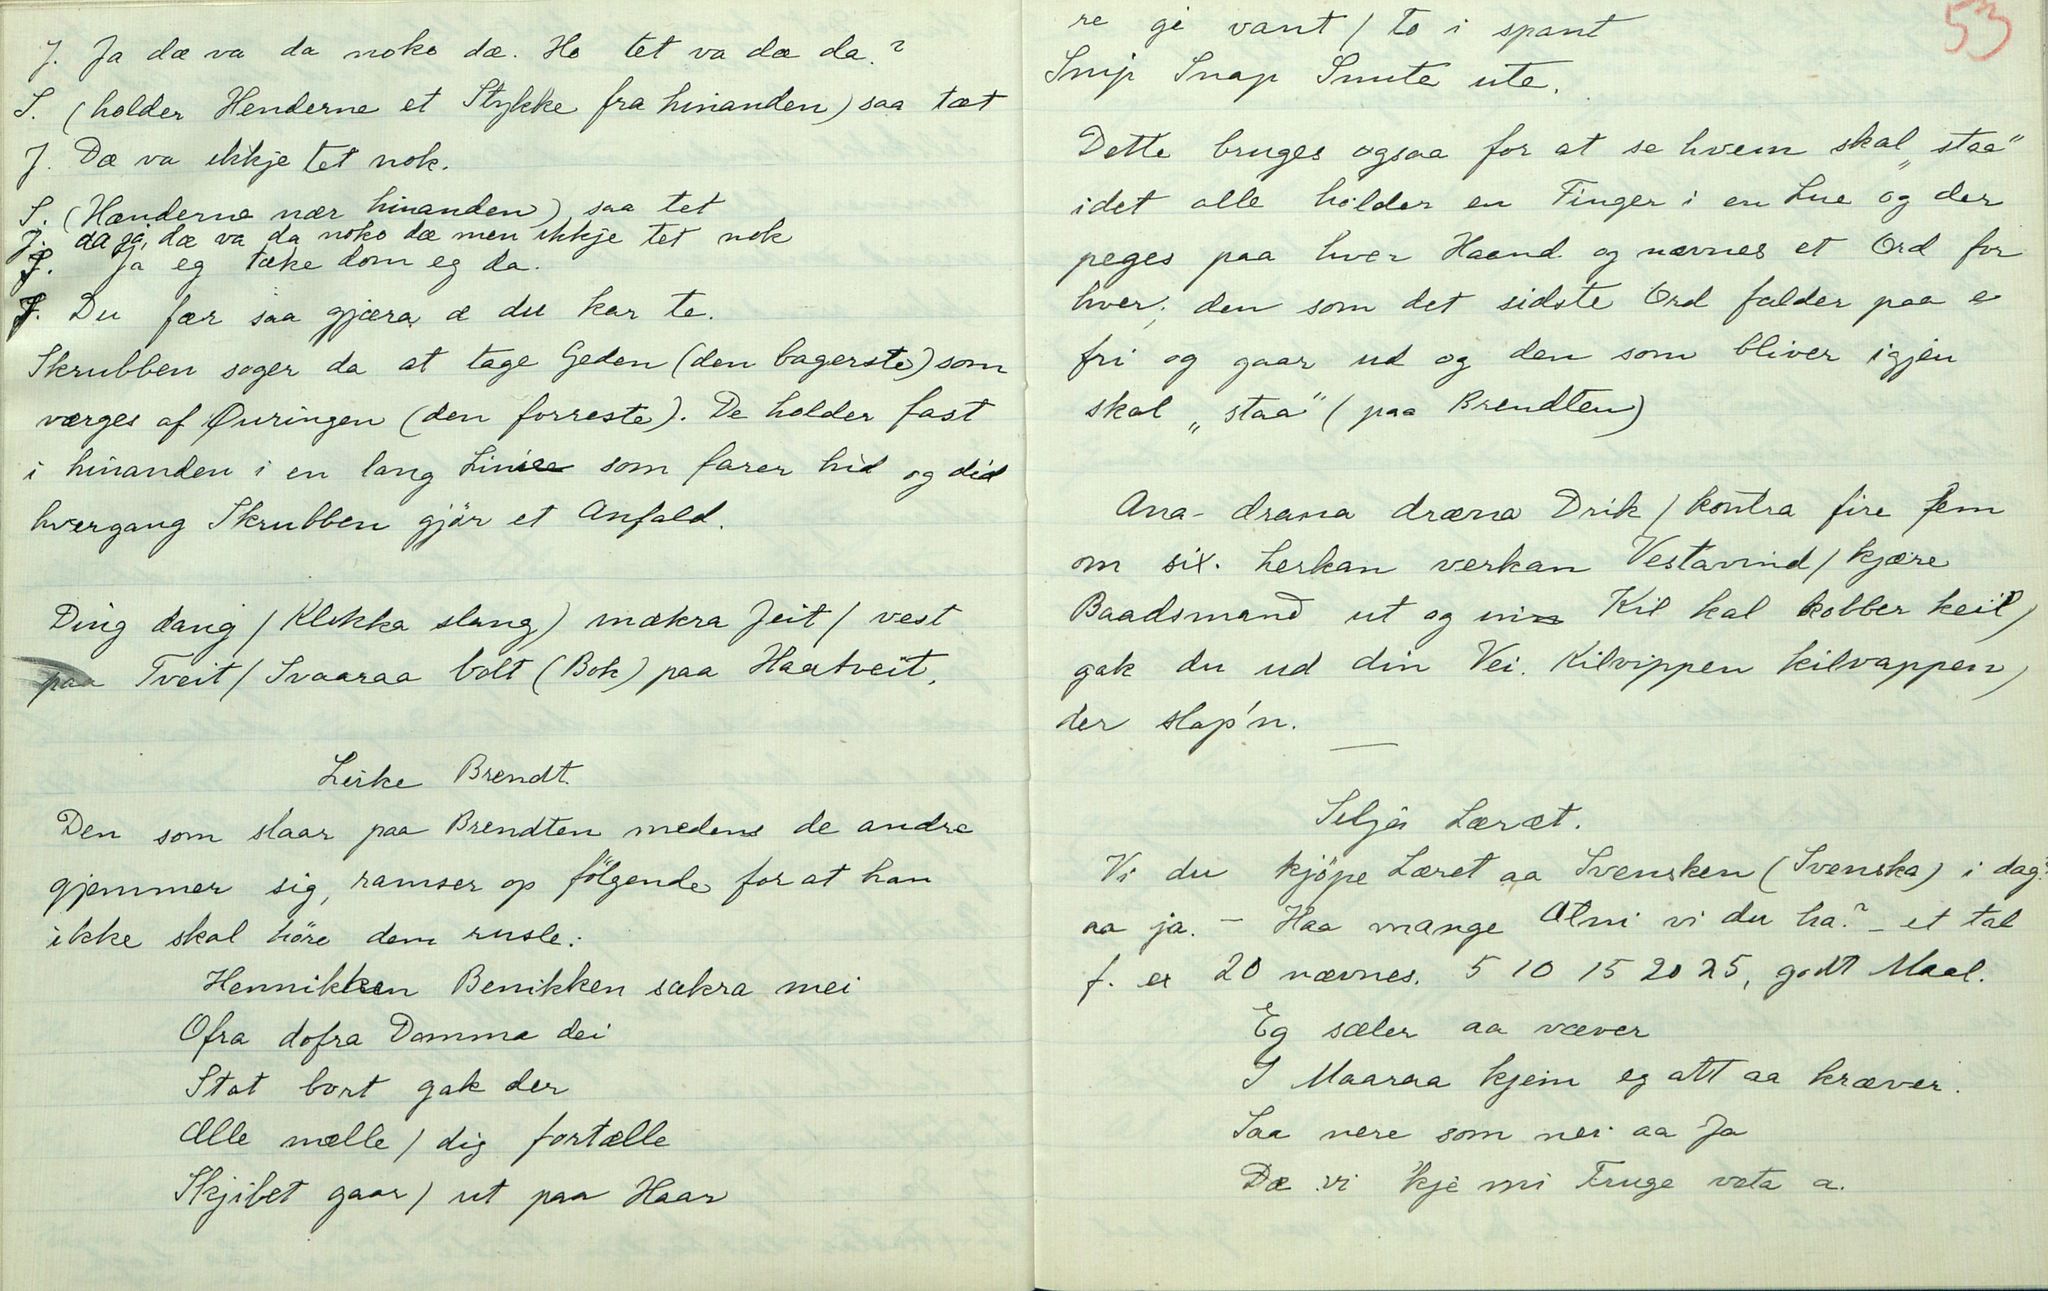 J. Ja dæ va da noko dæ. Ho tet va dæ da?
S. (holder Henderne et Stykke fra hinanden) saa tæt
J. Dæ va ikkje tet nok.
S. (Hænderne nær hinanden) saa tet
J. da ja, dæ va da noko dæ men ikkje tet nok
S. Ja eg tæke dom eg da.
J. Du fær saa gjæra æ du kar te.
Skrubben søger da at tage Geden (den bagerste) som
værges af Quringen (den forreste). De holder fast
i hinanden i en lang Linie som farer hid og did
hvergang Skrubben gjör et Anfald.
Ding dang / Klokka slang / mækra Jeit / vest
paa Tveit / Svaaraa bolt (Bok) paa Haatveit.
Leike Brendt.
Den som staar paa Brendten medens de andre
gjemmer sig, ramser op fölgende for at han
ikke skal höre dem rusle:
Hennikken Benikken sakra mei
Ofra dofra Domma dei
Stat bort gak der
Ælle mælle / dig fortælle
Skjibet gaar / ut paa Haar
53
re gi vant / to i spant
Snip Snap Snute ute.
Dette bruges ogsaa for at se hvem skal „staa"
idet alle holder en Finger i en Lue og der
peges paa hver Haand og nævnes et Ord for
hver; den som det sidste Ord falder paa e
fri og gaar ud og den som bliver igjen
skal „staa" (paa Brendten)
Ana- drana dræna Drik / kontra fire fem
om six. herkan verkan Vestavind / kjære
Baadsmand ut og in Kil kal kobber keil /
gak du ud din Vei. Kilvippen kilvappen /
der slap'n.
Selja Læræt.
Vi du kjöpe Læret aa Svensken (Svenska) i dag?
aa ja. – Haa mange Ælni vi du ha? – et tal
f. ex 20 nævnes. 5 10 15 20 25, godt Maal.
Eg sæler aa væver
I Maaraa kjem eg att aa kræver.
Saa nere som nei aa Ja
Dæ vi kje mi Fruge vata a.